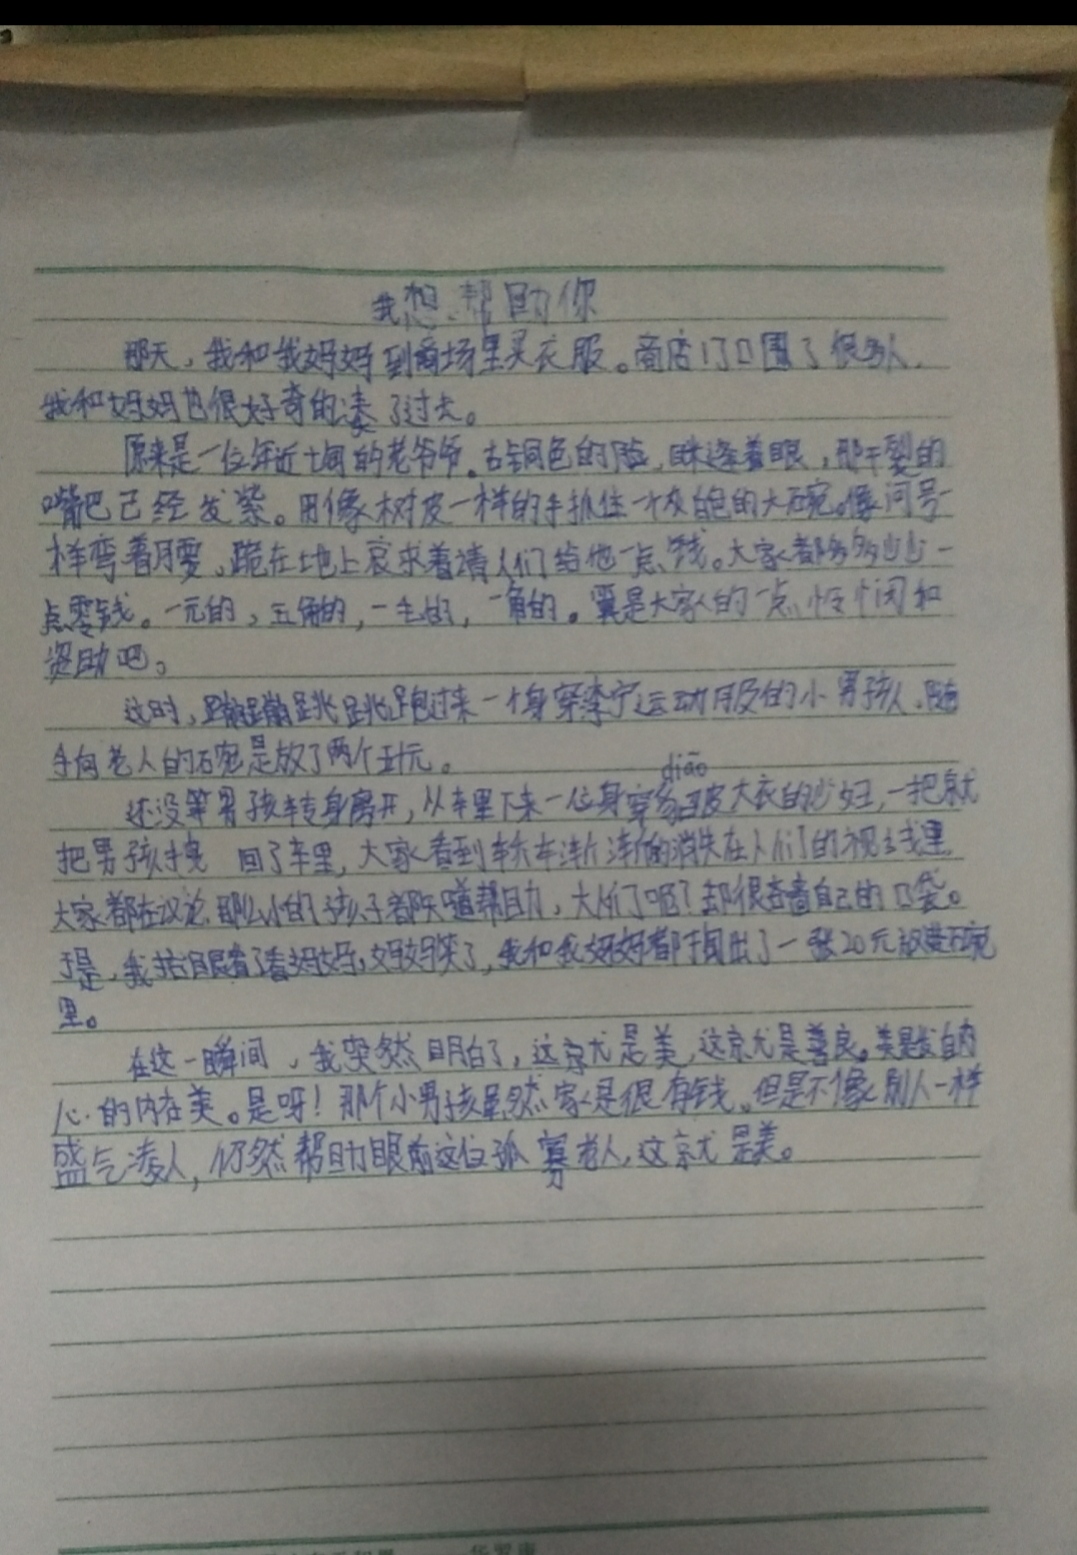 我想帮助你
那天，我和我妈妈到商场里买衣服。商店门口围了很多人，
我和妈妈也很好奇的凑了过去。
原来是一位年近七旬的老爷爷。古铜色的脸，眯缝着眼，那干裂的
嘴巴已经发紫。用像树皮一样的手抓住一个灰白色的大石碗。像问号一
样弯着腰，跪在地上哀求着请人们给他一点钱。大家都多多少少一
点零钱。一元的，五角的，一毛的，一角的。算是大家的一点怜悯和
资助吧。
这时，蹦蹦跳跳跑过来一个身穿李宁运动服的小男孩，随
手向老人的石碗里放了两个五元。
diāo
还没等男孩转身离开，从车里下来一位身穿貂皮大衣的少妇，一把就
把男孩拽 回了车里，大家看到轿车渐渐的消失在人们的视线里
大家都在议论，那么小的孩子都知道帮助，大人们呢？却很吝啬自己的口袋。
于是，我抬眼看了看妈妈，妈妈笑了，我和我妈妈都掏出了一张20元放进石碗
里。
在这一瞬间，我突然明白了，这就是美，这就是善良。美是发自内
心的内在美。是呀！那个小男孩虽然家里很有钱，但是不像别人一样
盛气凌人，仍然帮助眼前这位孤寡老人，这就是美。